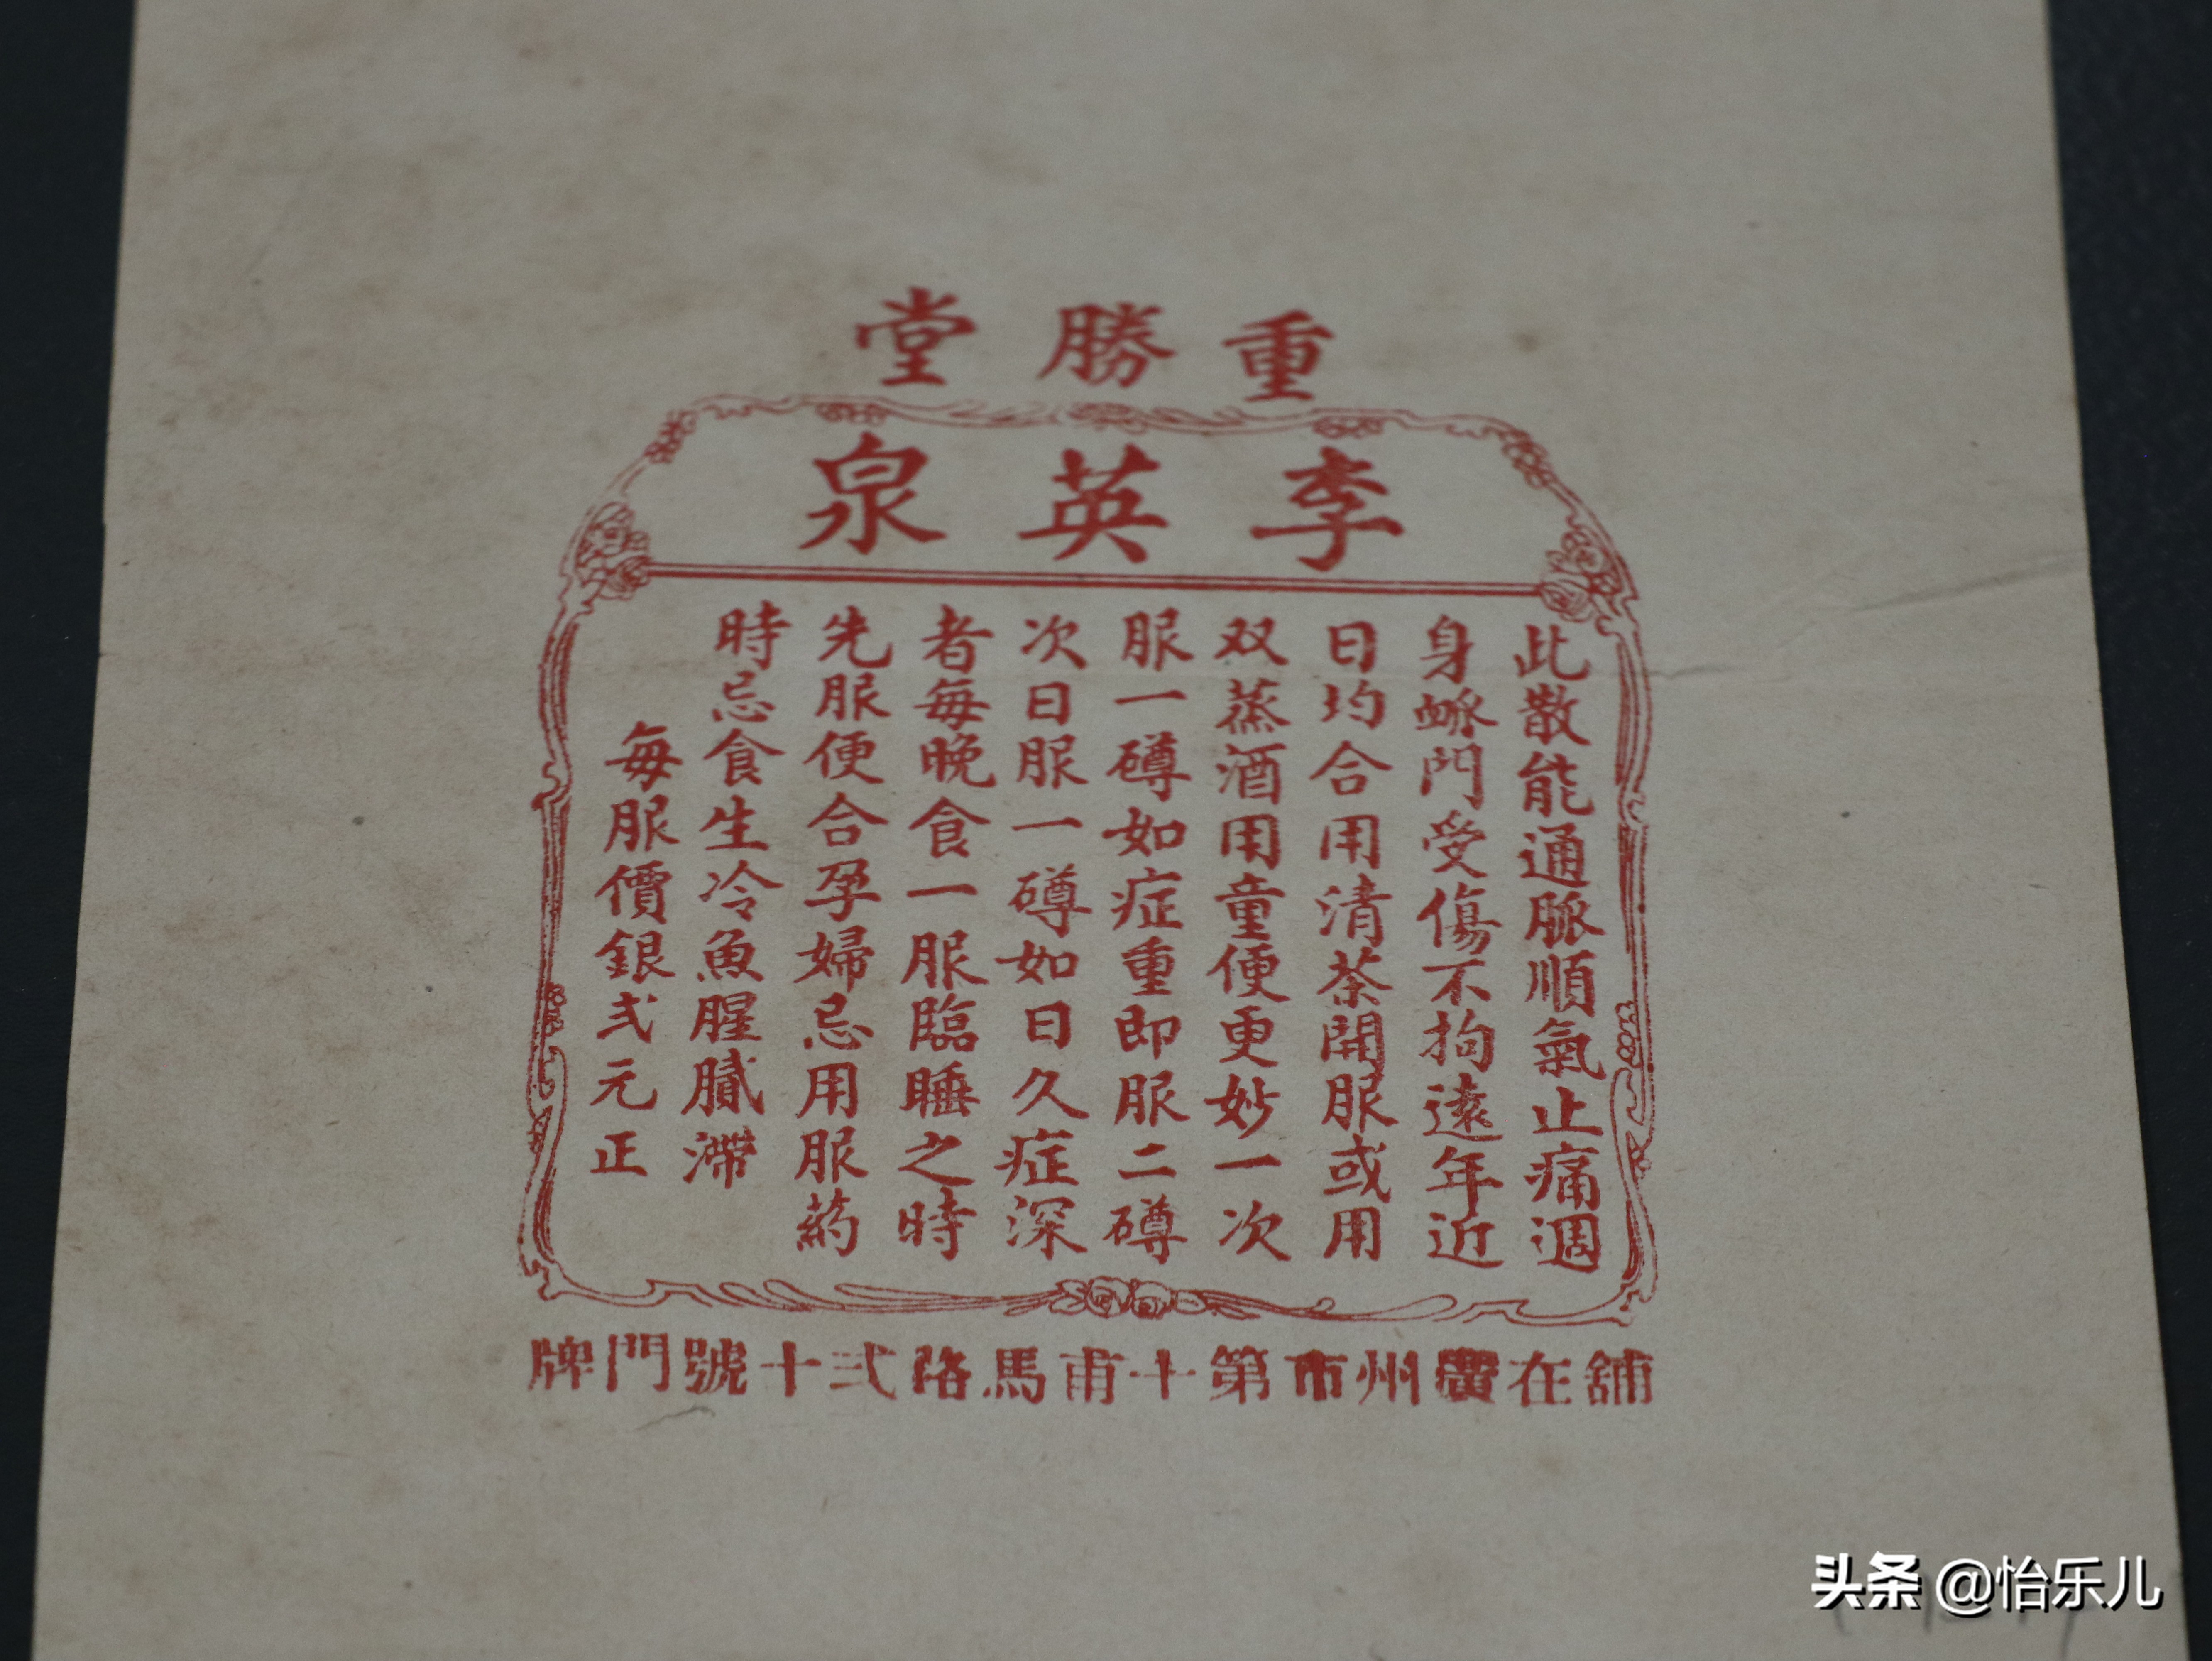 重勝堂
李英泉
此散能通脈順氣止痛週
身門受傷不拘遠年近
日均合用清茶開服或用
双蒸酒用童便更妙一次
服一磚如症重即服二磚
次日服一磚如日久症深
者每晚食一服臨睡之時
先服便合孕婦忌用服葯
時忌食生冷魚腥膩滯
每服價銀弍元正
舖在廣州市第十甫馬路弍十號門牌
头条 @怡乐儿